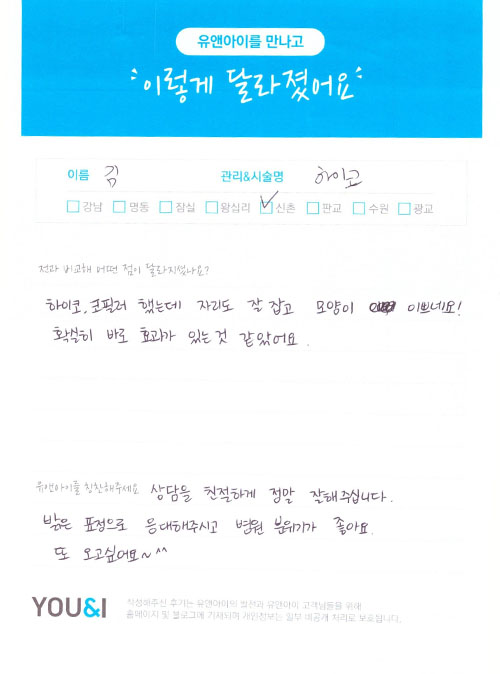 유앤아이를 만나고
이렇게 달라졌어요
이름 김 관리&시술명 하이코
강남 명동 잠실 왕십리 신촌 판교 수원 광교
전과 비교해 어떤 점이 달라지셨나요?
하이코, 코필러 했는데 자리도 잘 잡고 모양이 이쁘네요!
확실히 바로 효과가 있는 것 같았어요.
유앤아이를 칭찬해주세요 상담을 친절하게 정말 잘해주십니다.
밝은 표정으로 응대해주시고 병원 분위기가 좋아요.
또 오고싶어요~^^
YOU&I 작성해주신 후기는 유앤아이의 발전과 유앤아이 고객님들을 위해
홈페이지 및 블로그에 기재되며 개인정보는 일부 비공개 처리로 보호됩니다.